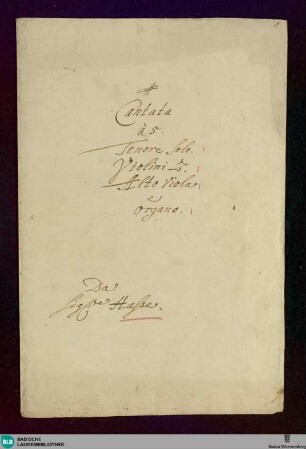 Cantata
à 5.
Tenore Solo.
Violini 2.
Alto Viola
e
Organo.
Da
Sig.re Hasse.
BLB BADISCHE
LANDESBIBLIOTHEK
Baden-Württemberg